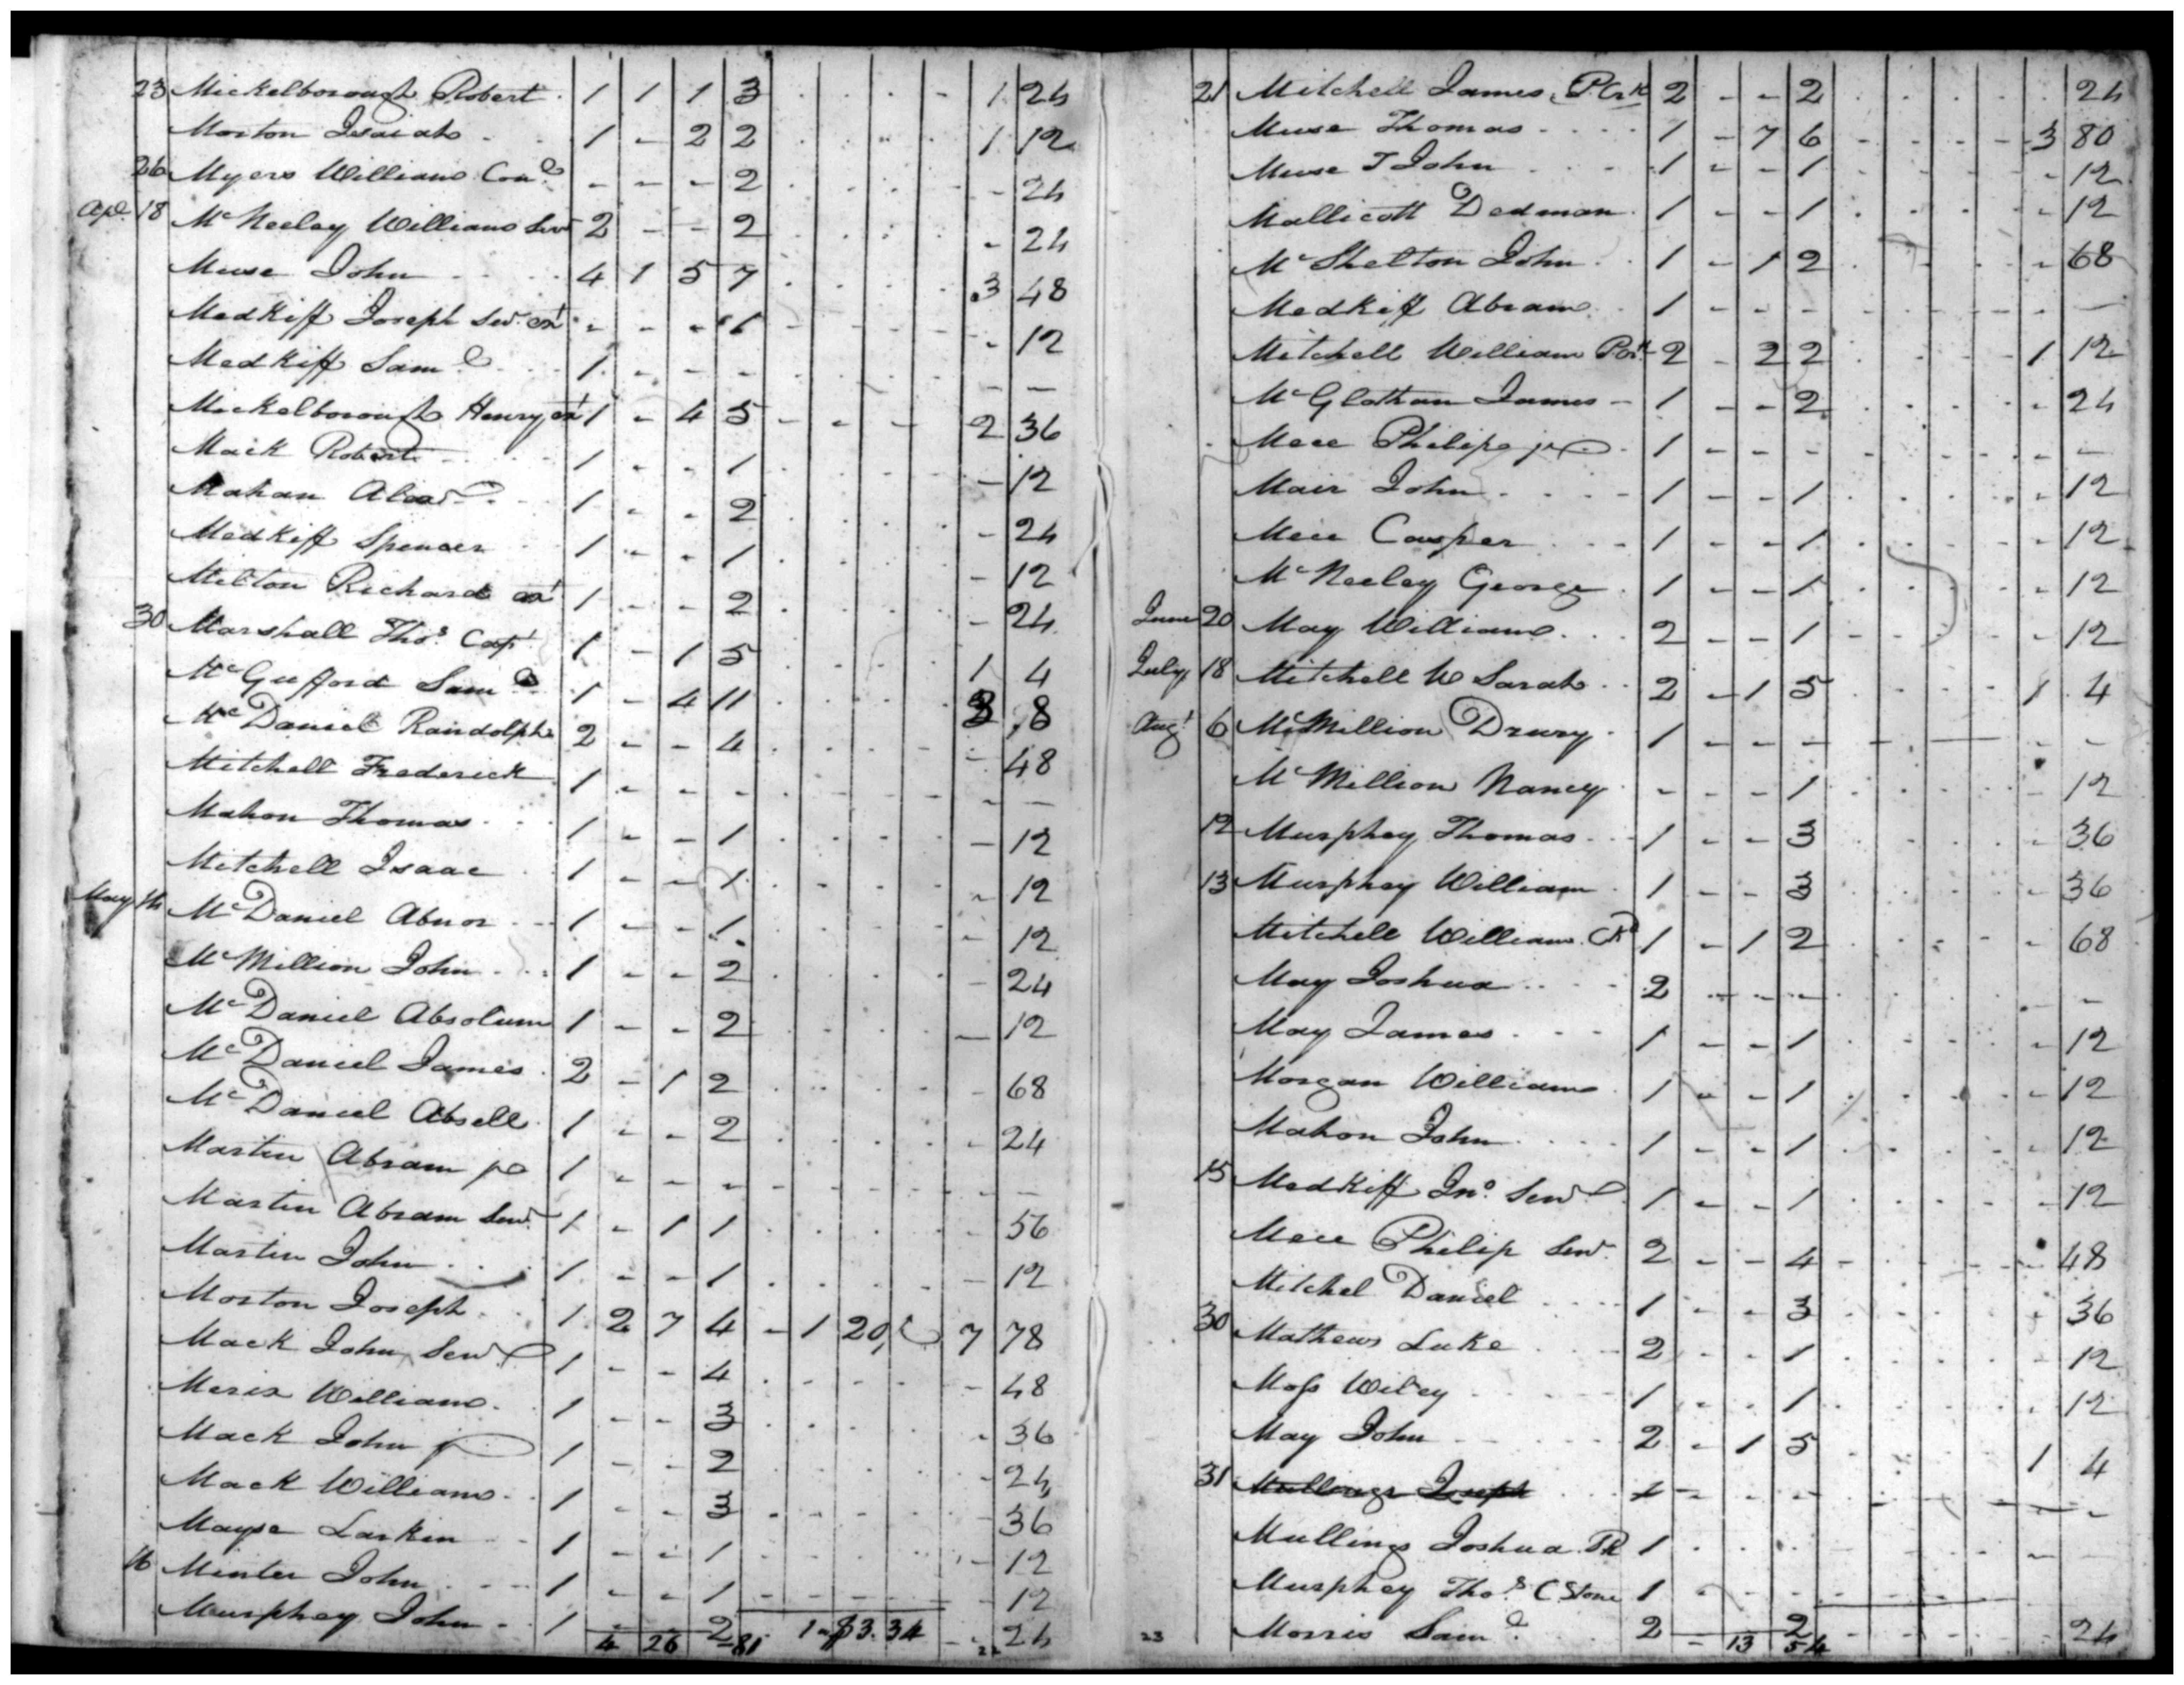 23 Mickelborough Robert 1 1 1 3 1 24
Morton Isaiah 1 - 2 2 1 12
26 Myers William Con.d - - - 2 - 24
Apl 18 McNeeley William Senr 2 - - 2 - 24
Muse John 4 1 5 7 3 48
Medkiff Joseph Senr ext - - - 1 - 12
Medkiff Saml 1 - - - - -
Mickelborough Henry ext 1 - 4 5 - - - 2 36
Mack Robert 1 - - 1 - 12
Mahan Alexdr 1 - - 2 - 24
Medkiff Spencer 1 - - 1 - 12
Milton Richard ext 1 - - 2 - 24
30 Marshall Thos Capt 1 - 1 5 1 4
McGufford Saml 1 - 4 11 3 8
McDaniel Randolph 2 - - 4 - 48
Mitchell Frederick 1 - - - - -
Mahon Thomas 1 - - 1 - 12
Mitchell Isaac 1 - - 1 - 12
May 14 McDaniel Abnor 1 - - 1 - 12
McMillion John 1 - - 2 - 24
McDaniel Absolum 1 - - 2 - 12
McDaniel James 2 - 1 2 - 68
McDaniel Absell 1 - - 2 - 24
Martin Abram jr 1 - - - - -
Martin Abram Senr 1 - 1 1 - 56
Martin John 1 - - 1 - 12
Morton Joseph 1 2 7 4 - 1 20, 7 78
Mack John Senr 1 - - 4 - 48
Merix William 1 - - 3 - 36
Mack John jr 1 - - 2 - 24
Mack William 1 - - 3 - 36
Mayse Larkin 1 - - 1 - 12
16 Minter John 1 - - 1 - 12
Murphey John 1 - - 2 - 24
4 26 81 1 - $3.34 22
21 Mitchell James P Crk 2 - - 2 24
Muse Thomas 1 - 7 6 - 3 80
Muse T John 1 - - 1 - 12
Mallicott Dedman 1 - - 1 - 12
McShelton John 1 - 1 2 - 68
Medkiff Abram 1 - - - - -
Mitchell William P Crk 2 - 2 2 1 12
McGlathan James 1 - - 2 - 24
Mece Philip jr 1 - - - - -
Mair John 1 - - 1 - 12
Mece Casper 1 - - 1 - 12
McNeeley George 1 - - 1 - 12
June 20 May William 2 - - 1 - 12
July 18 Mitchell W Sarah 2 - 1 5 1 4
Augt 6 McMillion Drury 1 - - - - -
McMillion Nancy - - - 1 - 12
12 Murphey Thomas 1 - - 3 - 36
13 Murphey William 1 - - 3 - 36
Mitchell William 1 - 1 2 - 68
May Joshua 2 - - - - -
May James 1 - - 1 - 12
Morgan William 1 - - 1 - 12
Mahon John 1 - - 1 - 12
15 Medkiff Jno Senr 1 - - 1 - 12
Mece Philip Senr 2 - - 4 - 48
Mitchel Daniel 1 - - 3 - 36
30 Mathews Luke 2 - - 1 - 12
Moss Wiley 1 - - 1 - 12
May John 2 - 1 5 1 4
31 Mullings Joseph 1 - - - - -
Mullings Joshua PR 1 - -
Murphey Thos C Stone 1 - - - -
Morris Saml 2 - - 2 - 24
23 13 54